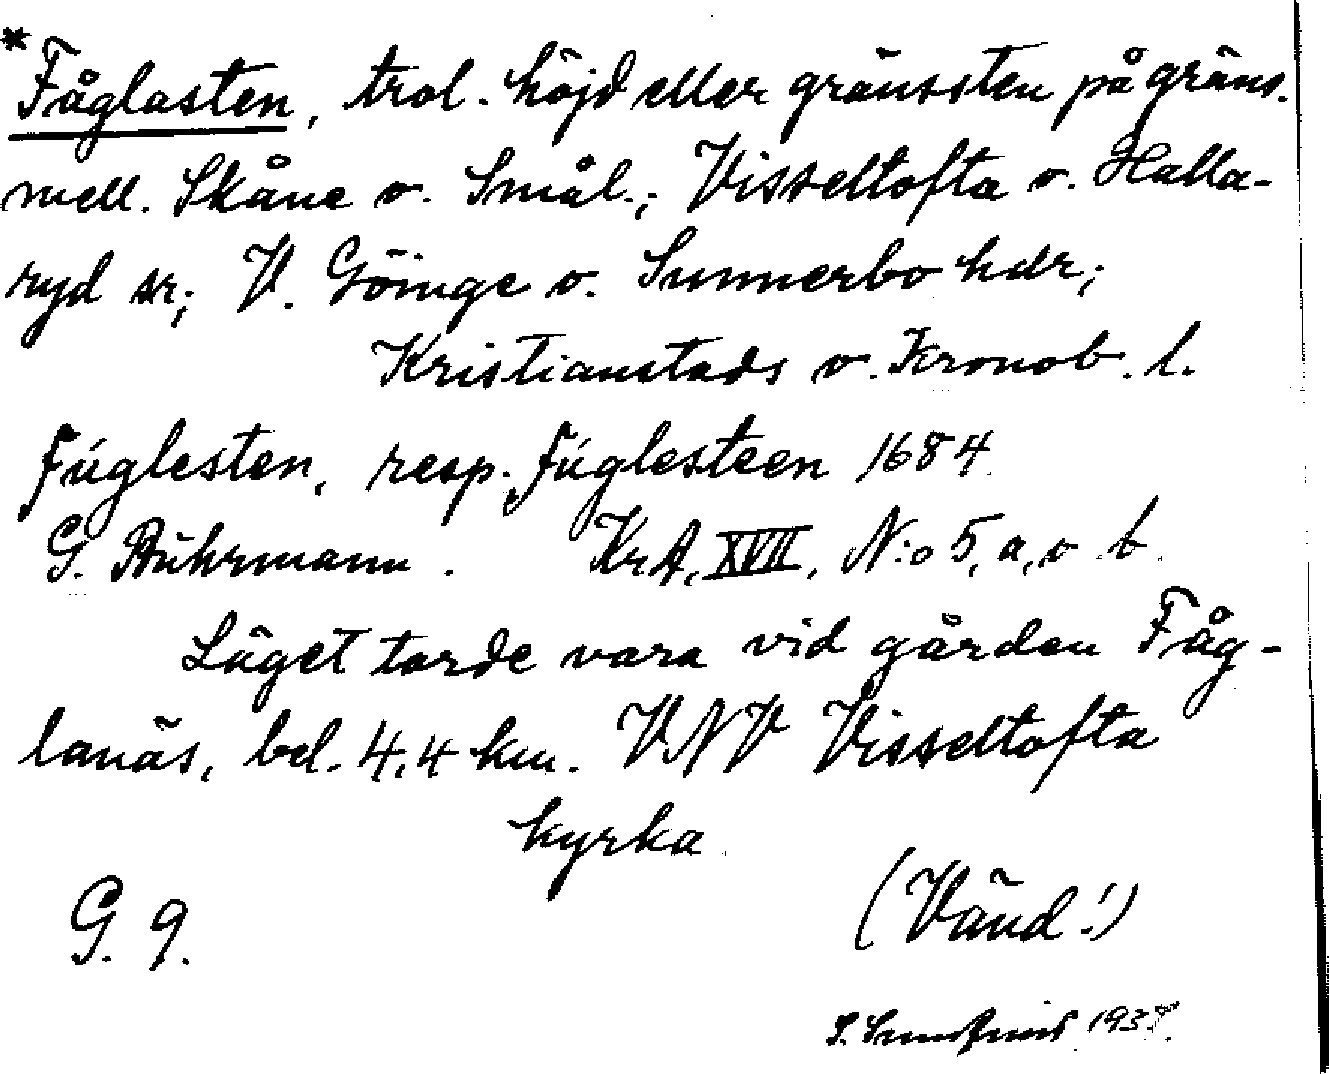 *Fåglasten, trol. höjd eller gränssten på gräns.
mell. Skåne o. Smål.; Visseltofta o. Halla-
ryd sr; V. Göinge o. Sunnerbo hdr;
Kristianstads o. Kronob. l.
Fúglesten, resp. Fúglesteen 1684
G. Buhrmann. KrA, XVII, N:o 5, a, o b.
Läget torde vara vid gården Fåg-
lanäs, bel. 4,4 km. VNV Visseltofta
kyrka
G. 9. (Vänd!)
S. 1938.